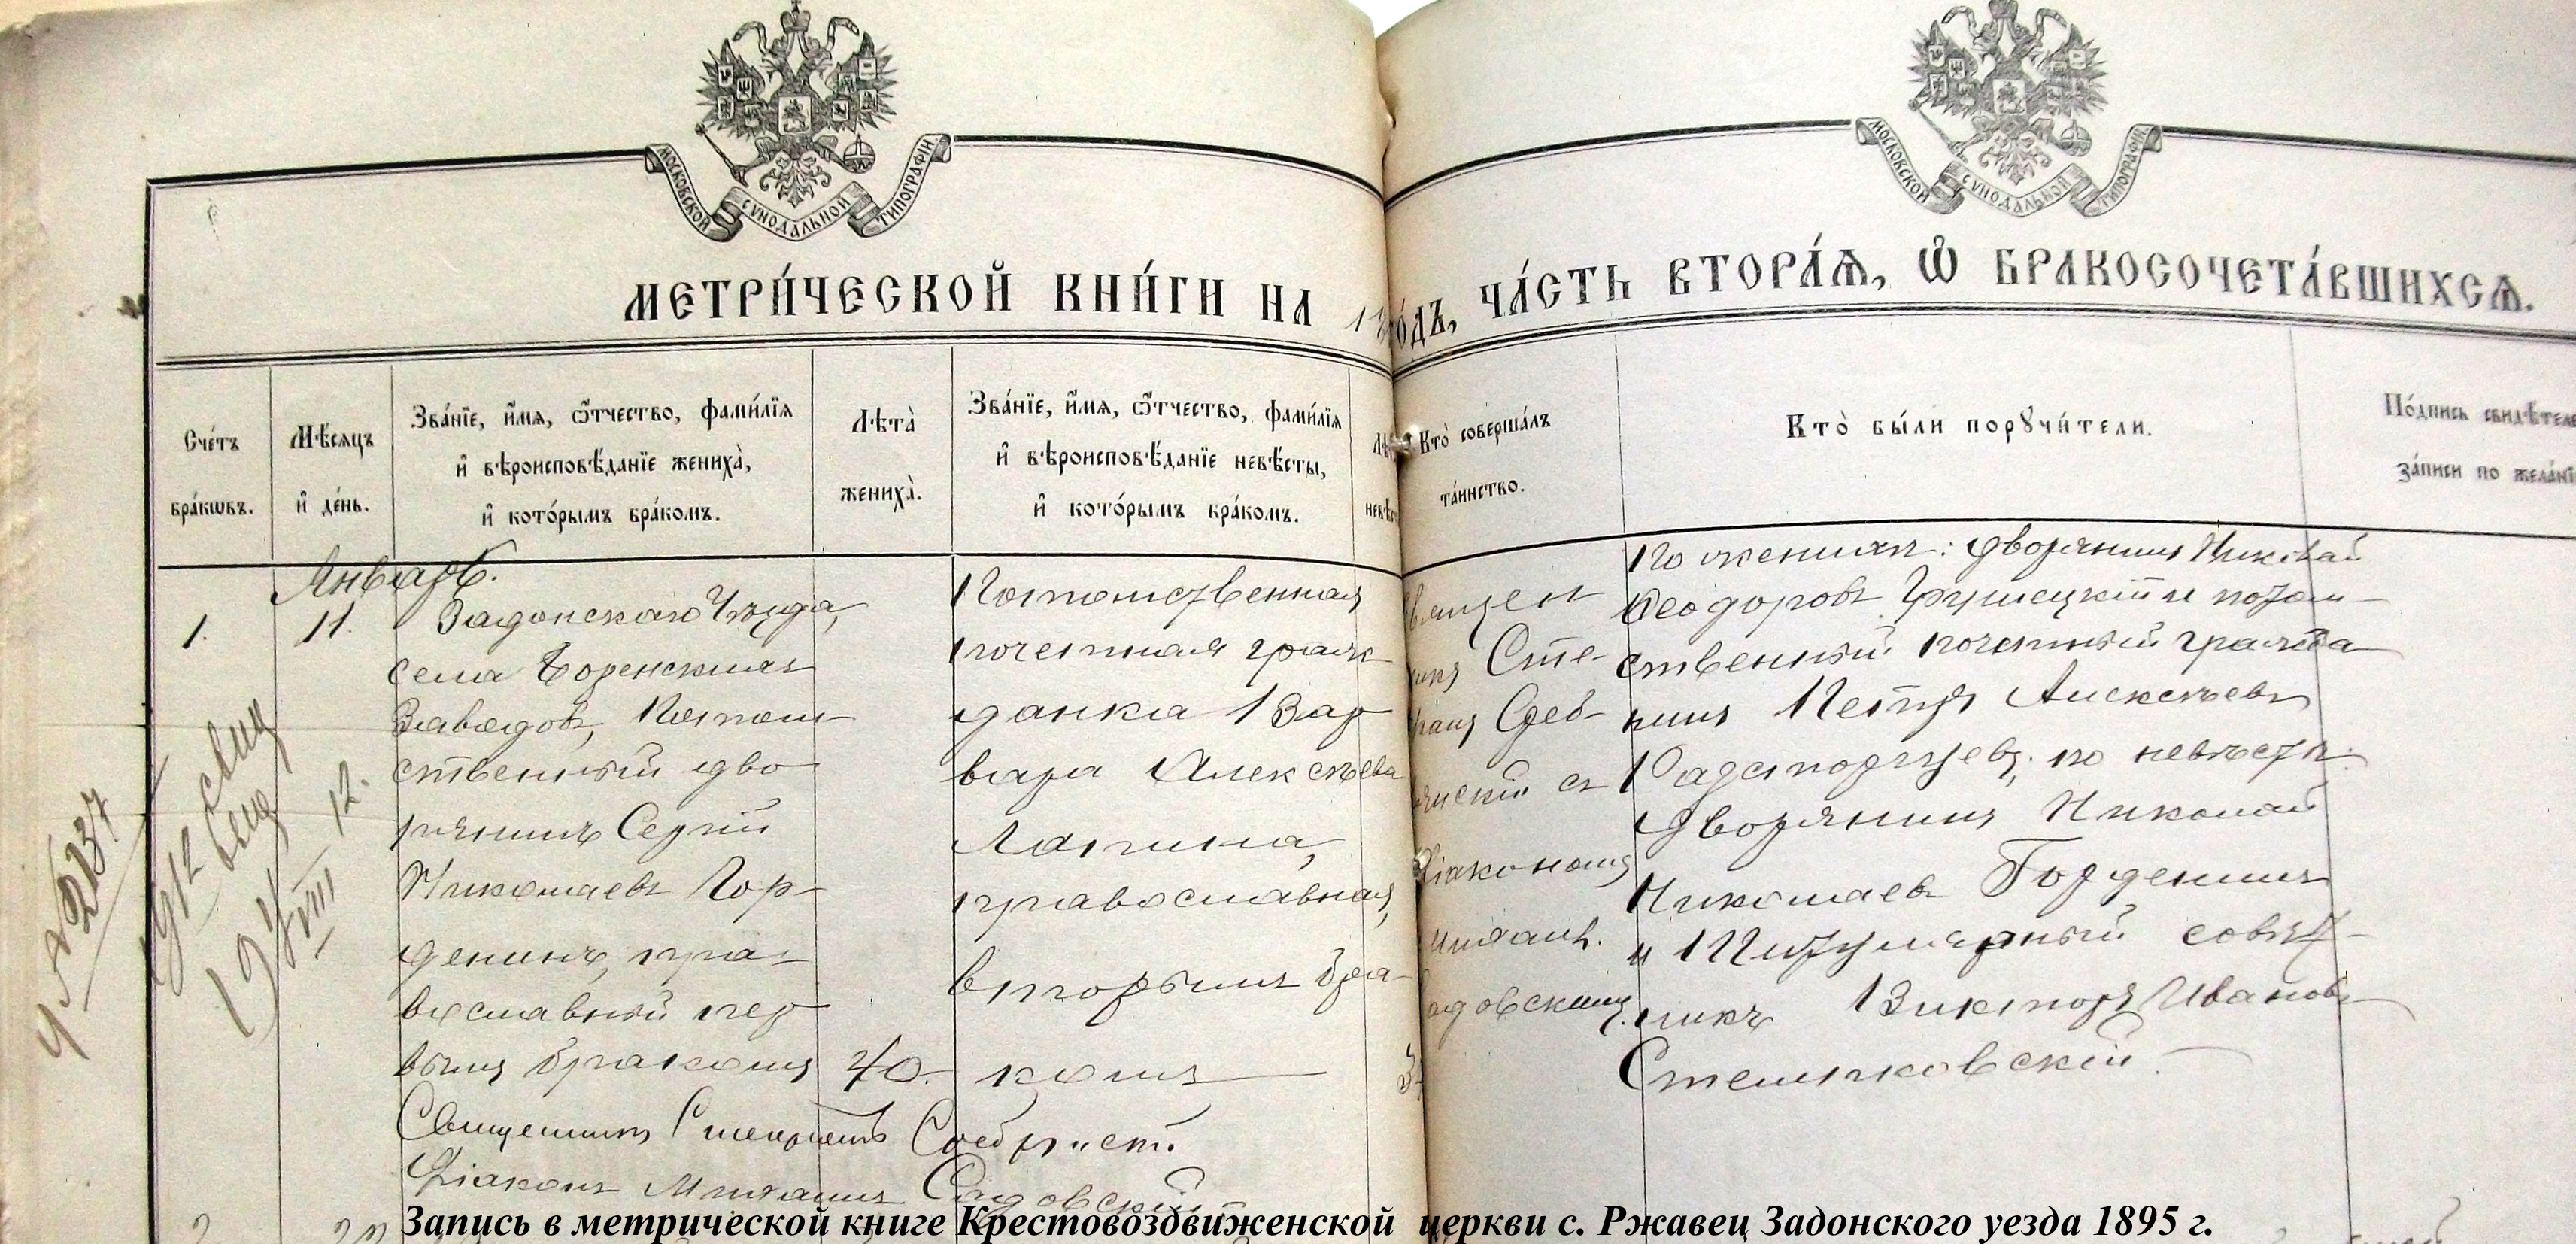 МОСКОВСКОЙ СѴНОДАЛЬНОЙ ТИПОГРАФІИ
МОСКОВСКОЙ СѴНОДАЛЬНОЙ ТИПОГРАФІИ
МЕТРИ́ЧЕСКОЙ КНИ́ГИ НА 1 го́дъ, ЧА́СТЬ ВТОРА́Ѧ, Ѽ БРАКОСОЧЕТА́ВШИХСѦ.
Сче́тъ
бра́кѡвъ.
Мѣ́сѧцъ
и҆ де́нь.
Зва́нїе, и҆́мѧ, ѻ҆́тчество, фами́лїѧ
и҆ вѣроисповѣ́данїе жениха̀,
и҆ кото́рымъ бра́комъ.
Лѣта̀
жениха̀.
Зва́нїе, и҆́мѧ, ѻ҆́тчество, фами́лїѧ
и҆ вѣроисповѣ́данїе невѣ́сты,
и҆ кото́рымъ бра́комъ.
Кто̀ соверша́лъ
та́инство.
Кто̀ бы́ли порꙋчи́тели.
По́дпись свидѣ́теле
за́писи по жела́нї
Январь.
1.
11.
Задонскаго Уѣзда,
села Боренскихъ
Заводовъ, Потом-
ственный дво-
рянинъ Сергій
Николаевъ Гор-
денинъ, пра-
вославный пер-
вымъ бракомъ
40.
Потомственная
почетная граж-
данка Вар-
вара Алексѣева
Лапина,
православная,
вторымъ бра-
комъ
3
Священ
Сте-
Среб-
съ
Діакономъ
Михаил.
Садовскимъ.
По женихѣ: дворянинъ Николай
Ѳеодоровъ Грушецкій и потом-
ственный почетный гражда-
нинъ Петръ Алексѣевъ
Расторгуевъ; по невѣстѣ:
дворянинъ Николай
Николаевъ Горденинъ
и Титулярный совѣт-
никъ Викторъ Ивановъ
Стемпковскій.
Священникъ
Діаконъ Михаилъ Садовскій
1912
VIII 12.
Запись в метрической книге Крестовоздвиженской церкви с. Ржавец Задонского уезда 1895 г.